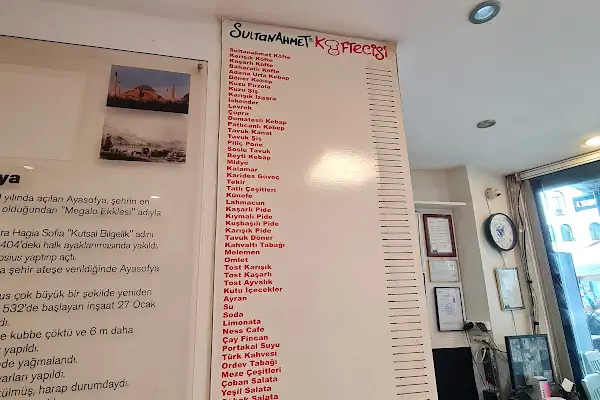 SULTANAHMET KÖFTECİSİ
Sultanahmet Köfte
Karışık Köfte
Kaşarlı Köfte
Baharatlı Köfte
Adana Urfa Kebap
Döner Kebap
Kuzu Pirzola
Kuzu Şiş
Karışık Izgara
İskender
Levrek
Çupra
Domatesli Kebap
Patlıcanlı Kebap
Tavuk Kanat
Tavuk Şiş
Piliç Pone
Soslu Tavuk
Beyti Kebap
Midye
Kalamar
Karides Güveç
Tekir
Tatlı Çeşitleri
Künefe
Lahmacun
Kaşarlı Pide
Kıymalı Pide
Kuşbaşılı Pide
Karışık Pide
Tavuk Döner
Kahvaltı Tabağı
Melemen
Omlet
Tost Karışık
Tost Kaşarlı
Tost Ayvalık
Kutu İçecekler
Ayran
Su
Soda
Limonata
Ness Cafe
Çay Fincan
Portakal Suyu
Türk Kahvesi
Ordev Tabağı
Meze Çeşitleri
Çoban Salata
Yeşil Salata
Salata
ya
yılında açılan Ayasofya, şehrin en
olduğundan "Megalo Ekklesi" adıyla
ra Hagia Sofia "Kutsal Bilgelik" adını
404'deki halk ayaklanmasında yakıldı.
osius yaptırıp açtı.
a şehir ateşe verildiğinde Ayasofya
us çok büyük bir şekilde yeniden
532'de başlayan inşaat 27 Ocak
dı.
e kubbe çöktü ve 6 m daha
yapıldı.
de yağmalandı.
varları yapıldı.
külmüş, harap durumdaydı.